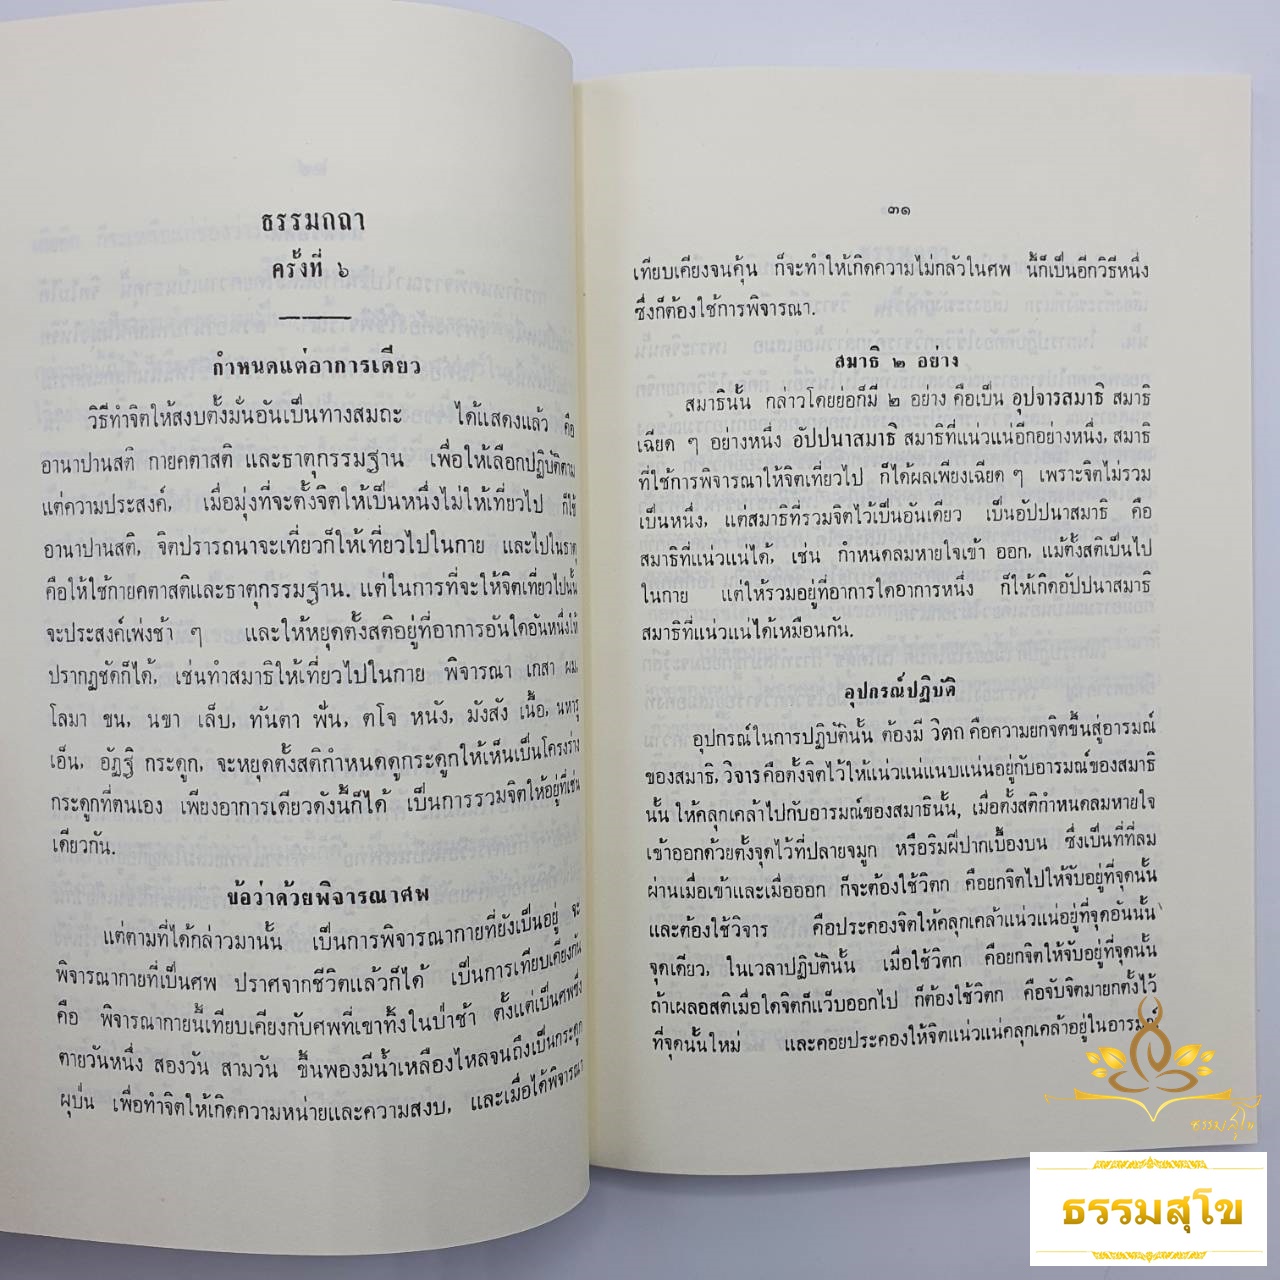 ธรรมกถา
ครั้งที่ ๖
กำหนดแต่อาการเดียว
วิธีทำจิตให้สงบตั้งมั่นอันเป็นทางสมถะ ได้แสดงแล้ว คือ
อานาปานสติ กายคตาสติ และธาตุกรรมฐาน เพื่อให้เลือกปฏิบัติตาม
แต่ความประสงค์, เมื่อมุ่งที่จะตั้งจิตให้เป็นหนึ่งไม่ให้เที่ยวไป ก็ใช้
อานาปานสติ, จิตปรารถนาจะเที่ยวก็ให้เที่ยวไปในกาย และไปในธาตุ
คือให้ใช้กายคตาสติและธาตุกรรมฐาน. แต่ในการที่จะให้จิตเที่ยวไปนั้น
จะประสงค์เพ่งช้า ๆ และให้หยุดตั้งสติอยู่ที่อาการอันใดอันหนึ่งให้
ปรากฏชัดก็ได้, เช่นทำสมาธิให้เที่ยวไปในกาย พิจารณา เกสา ผม,
โลมา ขน, นขา เล็บ, ทันตา ฟัน, ตโจ หนัง, มังสัง เนื้อ, นหารุ
เอ็น, อัฏฐิ กระดูก, จะหยุดตั้งสติกำหนดดูกระดูกให้เห็นเป็นโครงร่าง
กระดูกที่ตนเอง เพียงอาการเดียวดังนี้ก็ได้ เป็นการรวมจิตให้อยู่ที่เช่น
เดียวกัน.
ข้อว่าด้วยพิจารณาศพ
แต่ตามที่ได้กล่าวมานั้น เป็นการพิจารณากายที่ยังเป็นอยู่ จะ
พิจารณากายที่เป็นศพ ปราศจากชีวิตแล้วก็ได้ เป็นการเทียบเคียงกัน
คือ พิจารณากายนี้เทียบเคียงกับศพที่เขาทิ้งในป่าช้า ตั้งแต่เป็นศพซึ่ง
ตายวันหนึ่ง สองวัน สามวัน ขึ้นพองมีน้ำเหลืองไหลจนถึงเป็นกระดูก
ผุป่น เพื่อทำจิตให้เกิดความหน่ายและความสงบ, และเมื่อได้พิจารณา
๓๑
เทียบเคียงจนคุ้น ก็จะทำให้เกิดความไม่กลัวในศพ นี้ก็เป็นอีกวิธีหนึ่ง
ซึ่งก็ต้องใช้การพิจารณา.
สมาธิ ๒ อย่าง
สมาธินั้น กล่าวโดยย่อก็มี ๒ อย่าง คือเป็น อุปจารสมาธิ สมาธิ
เฉียด ๆ อย่างหนึ่ง อัปปนาสมาธิ สมาธิที่แน่วแน่อีกอย่างหนึ่ง, สมาธิ
ที่ใช้การพิจารณาให้จิตเที่ยวไป ก็ได้ผลเพียงเฉียด ๆ เพราะจิตไม่รวม
เป็นหนึ่ง, แต่สมาธิที่รวมจิตไว้เป็นอันเดียว เป็นอัปปนาสมาธิ คือ
สมาธิที่แน่วแน่ได้, เช่น กำหนดลมหายใจเข้า ออก, แม้ตั้งสติเป็นไป
ในกาย แต่ให้รวมอยู่ที่อาการใดอาการหนึ่ง ก็ให้เกิดอัปปนาสมาธิ
สมาธิที่แน่วแน่ได้เหมือนกัน.
อุปกรณ์ปฏิบัติ
อุปกรณ์ในการปฏิบัตินั้น ต้องมี วิตก คือความยกจิตขึ้นสู่อารมณ์
ของสมาธิ, วิจาร คือตั้งจิตไว้ให้แน่วแน่แนบแน่นอยู่กับอารมณ์ของสมาธิ
นั้น ให้คลุกเคล้าไปกับอารมณ์ของสมาธินั้น, เมื่อตั้งสติกำหนดลมหายใจ
เข้าออกด้วยตั้งจุดไว้ที่ปลายจมูก หรือริมฝีปากเบื้องบน ซึ่งเป็นที่ที่ลม
ผ่านเมื่อเข้าและเมื่อออก ก็จะต้องใช้วิตก คือยกจิตไปให้จับอยู่ที่จุดนั้น
และต้องใช้วิจาร คือประคองจิตให้คลุกเคล้าแน่วแน่อยู่ที่จุดอันนั้น
จุดเดียว, ในเวลาปฏิบัตินั้น เมื่อใช้วิตก คือยกจิตให้จับอยู่ที่จุดนั้น
ถ้าเผลอสติเมื่อใดจิตก็แว็บออกไป ก็ต้องใช้วิตก คือจับจิตมายกตั้งไว้
ที่จุดนั้นใหม่ และคอยประคองให้จิตแน่วแน่คลุกเคล้าอยู่ในอารมณ์
ธรรมสุโข
ธรรมสุโข